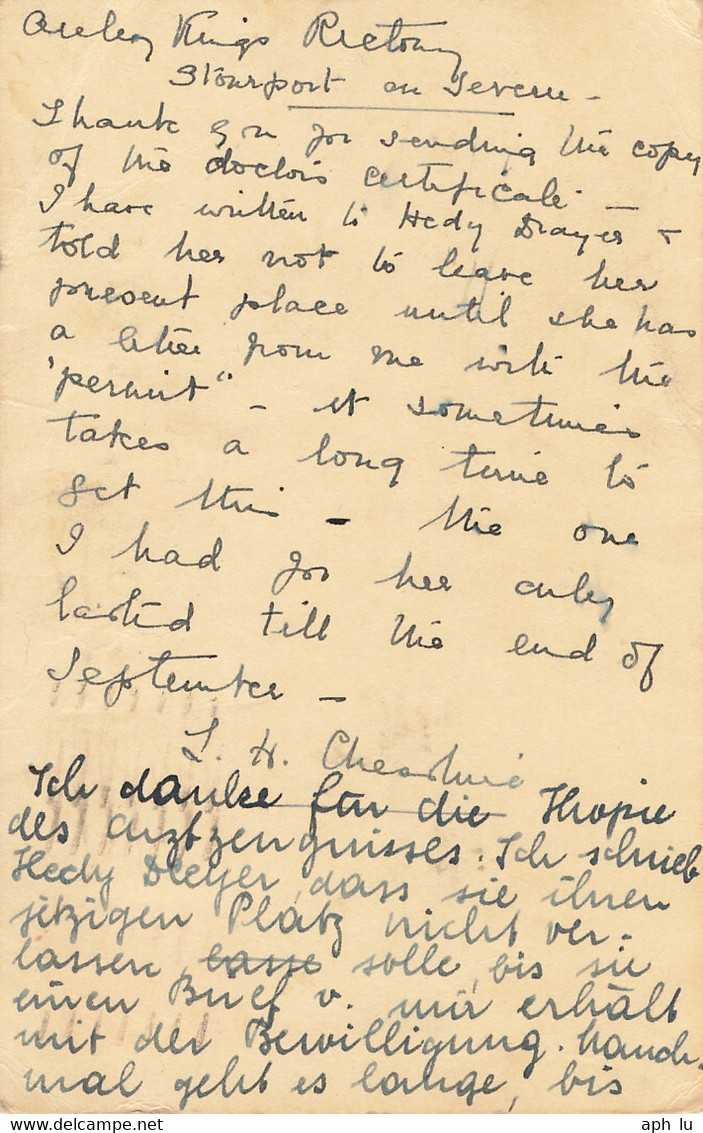 Areley Kings Rectory
Stourport on Severn -
Thank you for sending the copy
of the doctors certificate -
I have written to Hedy Drayer &
told her not to leave her
present place until she has
a letter from me with the
"permit" - it sometimes
takes a long time to
get this - the one
I had for her only
lasted till the end of
September -
L. H. Cheshire
Ich danke für die Kopie
des Arztzeugnisses. Ich schrieb
Hedy Dreyer, dass sie ihren
jetzigen Platz nicht ver-
lassen lasse solle, bis sie
einen Brief v. mir erhält
mit der Bewilligung. Manch-
mal geht es lange, bis
aph lu